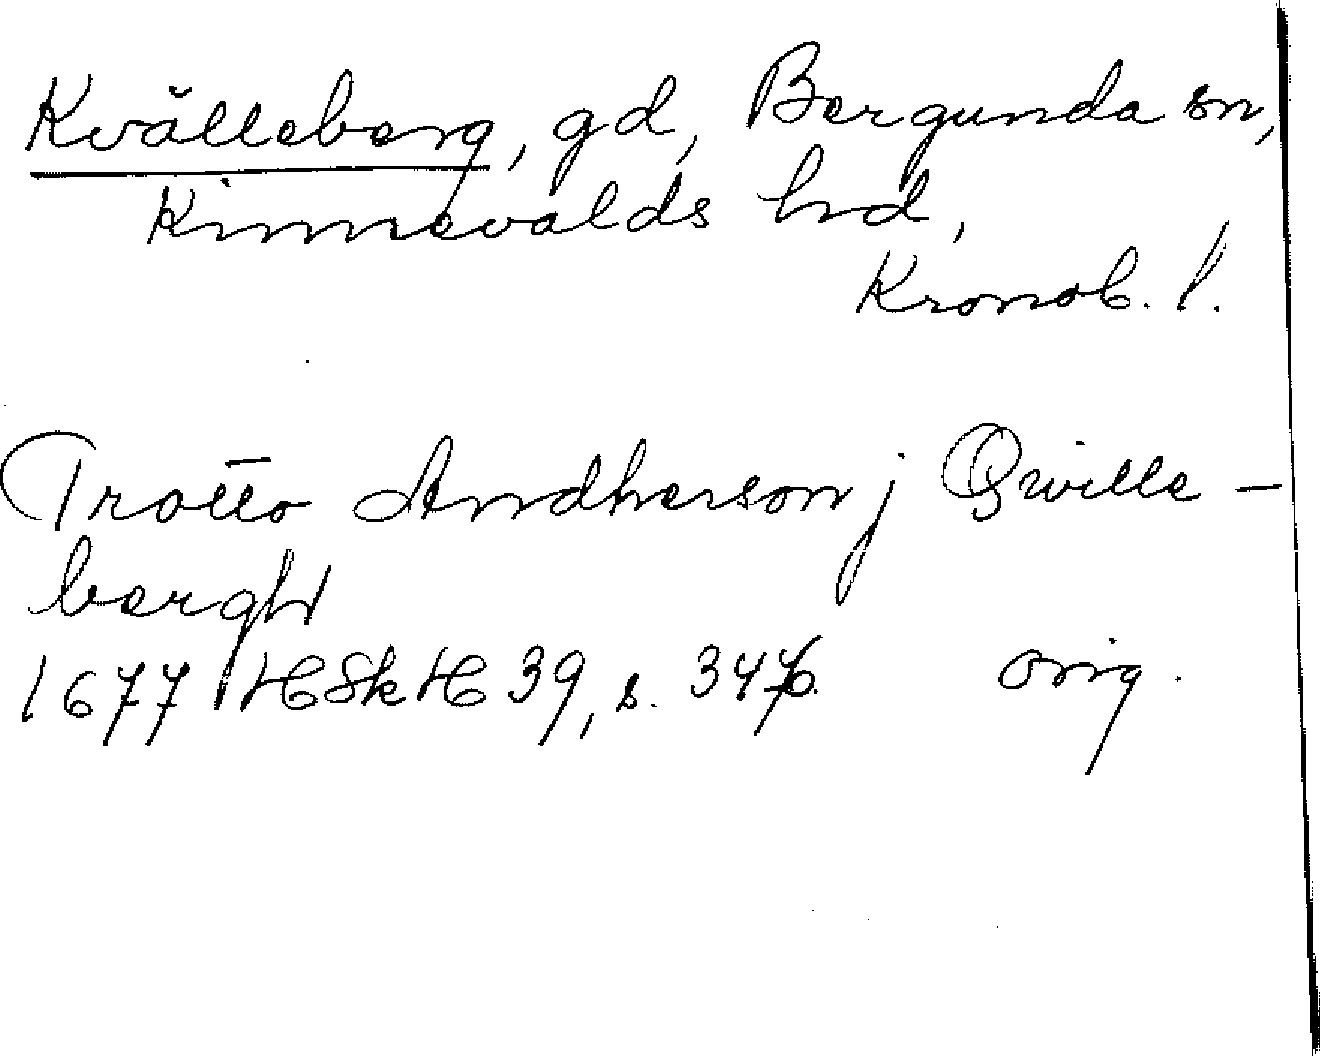 Kvälleberg, gd, Bergunda sn,
Kinnevalds hd,
Kronob. l.
Trotto Andherson j Qwille-
bergh
1677 HSkH 39, s. orig.